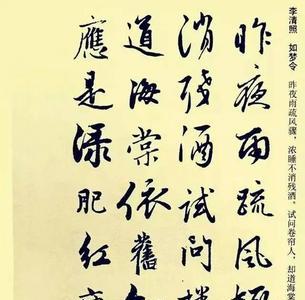 李清照 如梦令
昨夜雨疏风骤，浓睡不消残酒。试问卷帘人，却道海棠
昨夜雨疏风
消残酒试问
道海棠依舊
應是绿肥红